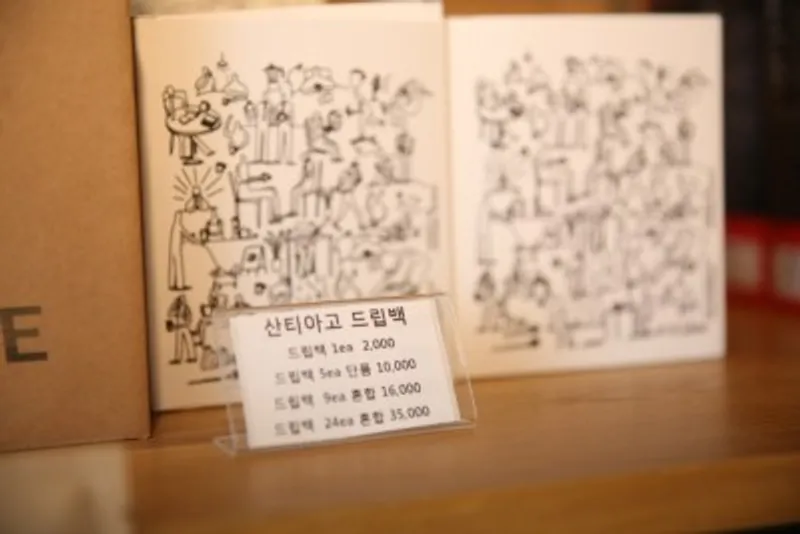 E
산티아고 드립백
드립백 1ea 2,000
드립백 5ea 단품 10,000
드립백 9ea 혼합 16,000
드립백 24ea 혼합 35,000